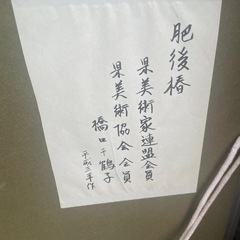 肥後椿
県美術家連盟会員
県美術協会会員
橋口千鶴子
平成三年作